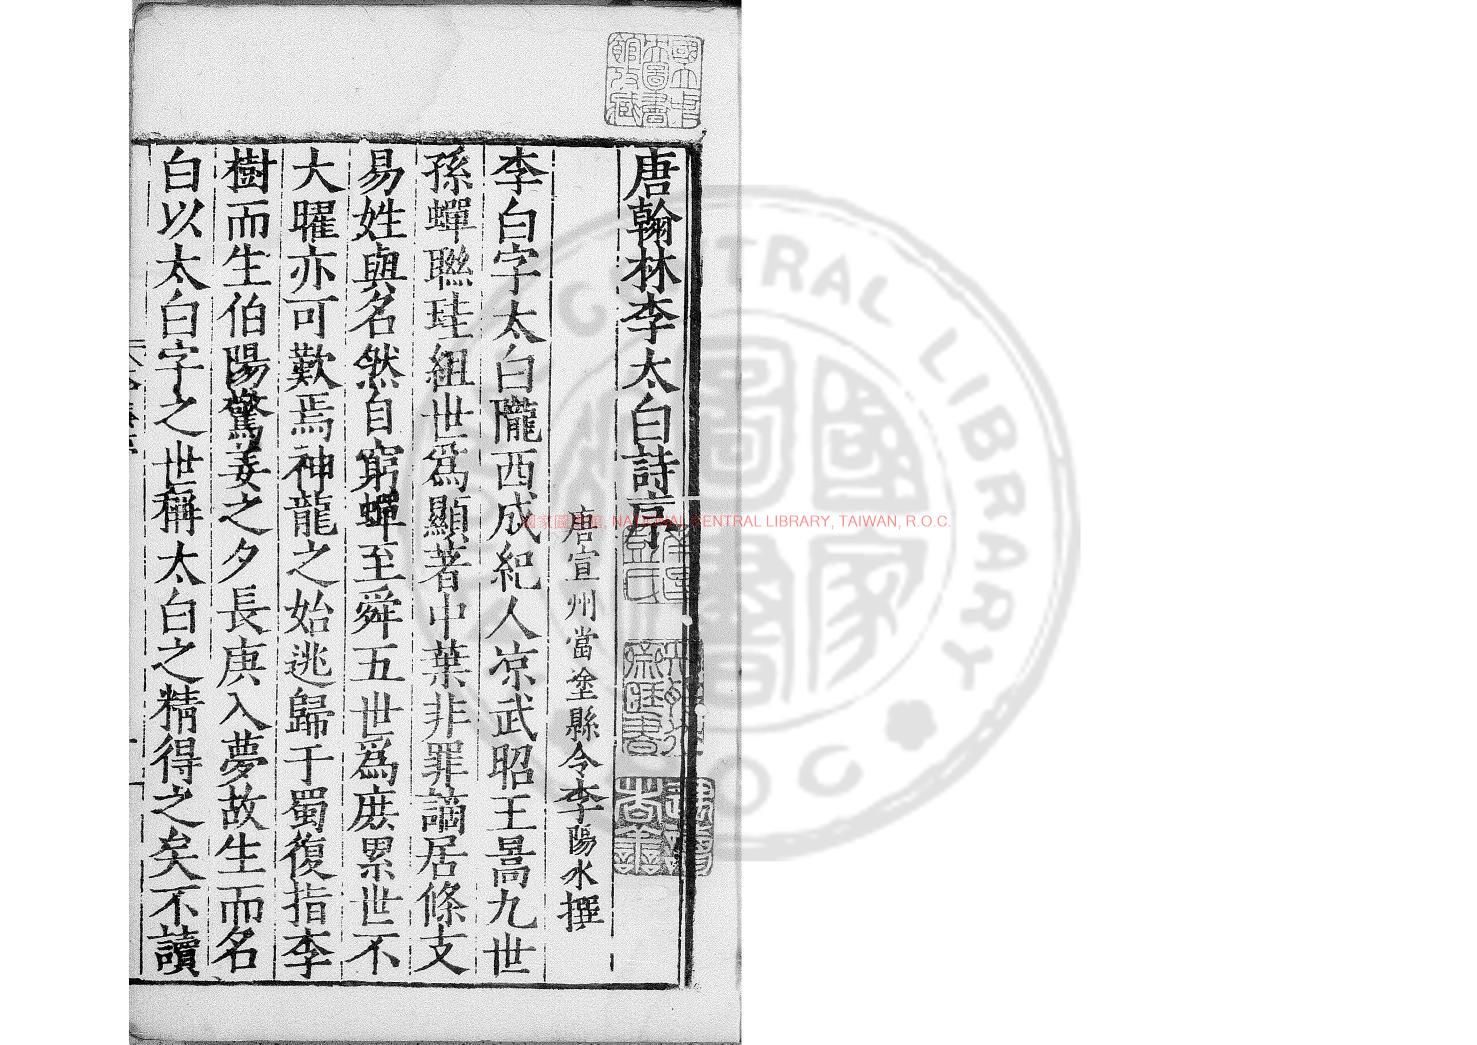 唐翰林李太白詩序
唐宣州當塗縣令李陽冰撰
李白字太白隴西成紀人凉武昭王暠九世
孫蟬聯珪組世爲顯著中葉非罪謫居條支
易姓與名然自窮蟬至舜五世爲庶累世不
大曜亦可歎焉神龍之始逃歸于蜀復指李
樹而生伯陽驚姜之夕長庚入夢故生而名
白以太白字之世稱太白之精得之矣不讀
國家圖書館, NATIONAL CENTRAL LIBRARY, TAIWAN, R.O.C.
CENTRAL LIBRARY
R O C
國家圖書